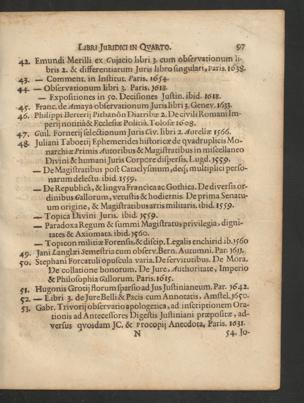 LIBRI JURIDICI IN QVARTO. 97
42. Emundi Merilli ex Cujacio libri 3. cum observationum li-
bris 2. & differentiarum Juris libro singulari, Paris. 1638.
43. — Comment. in Institut. Paris. 1654.
44. — Observationum libri 3. Paris. 1618.
— Expositiones in 50. Decisiones Justin. ibid. 1618.
45. Franc. de Amaya observationum Juris libri 3. Genev. 1633.
46. Philippi Berterij Pithanôn Diatribæ 2. De civili Romani Im-
perij notitia & Ecclesiæ Politia. Tolosæ 1608.
47. Guil. Fornerij selectionum Juris Civ. libri 2. Aureliæ 1566.
48. Juliani Taboetij Ephemerides historicæ de quadruplicis Mo-
narchiæ Primis Autoribus & Magistratibus in miscellaneo
Divini & humani Juris Corpore dispersis. Lugd. 1559.
— De Magistratibus post Cataclysmum, deq; multiplici perso-
narum delectu. ibid. 1559.
— De Republica, & lingva Francica ac Gothica. De diversis or-
dinibus Gallorum, vetustis & hodiernis. De prima Senatu-
um origine, & Magistratibus artis militaris. ibid. 1559.
— Topica Divini Juris. ibid. 1559.
— Paradoxa Regum & summi Magistratus privilegia, digni-
tates & Axiomata. ibid. 1560.
— Topicon militiæ Forensis, & discip. Legalis enchirid. ib. 1560
49. Jani Langlæi semestria cum observ. Bern. Autumni. Par. 1611.
50. Stephani Forcatuli opuscula varia. De servitutibus. De Mora.
De collatione bonorum. De Jure, Authoritate, Imperio
& Philosophia Gallorum. Paris. 1615.
51. Hugonis Grotij florum sparsio ad Jus Justinianeum. Par. 1642.
52. — Libri 3. de Jure Belli & Pacis cum Annotatis. Amstel. 1650.
53. Gabr. Trivorij observatio apologetica, ad inscriptionem Ora-
tionis ad Antecessores Digestis Justiniani præpositæ, ad-
versus qvosdam JC. & Procopij Anecdota, Paris. 1631.
N 54. Jo-